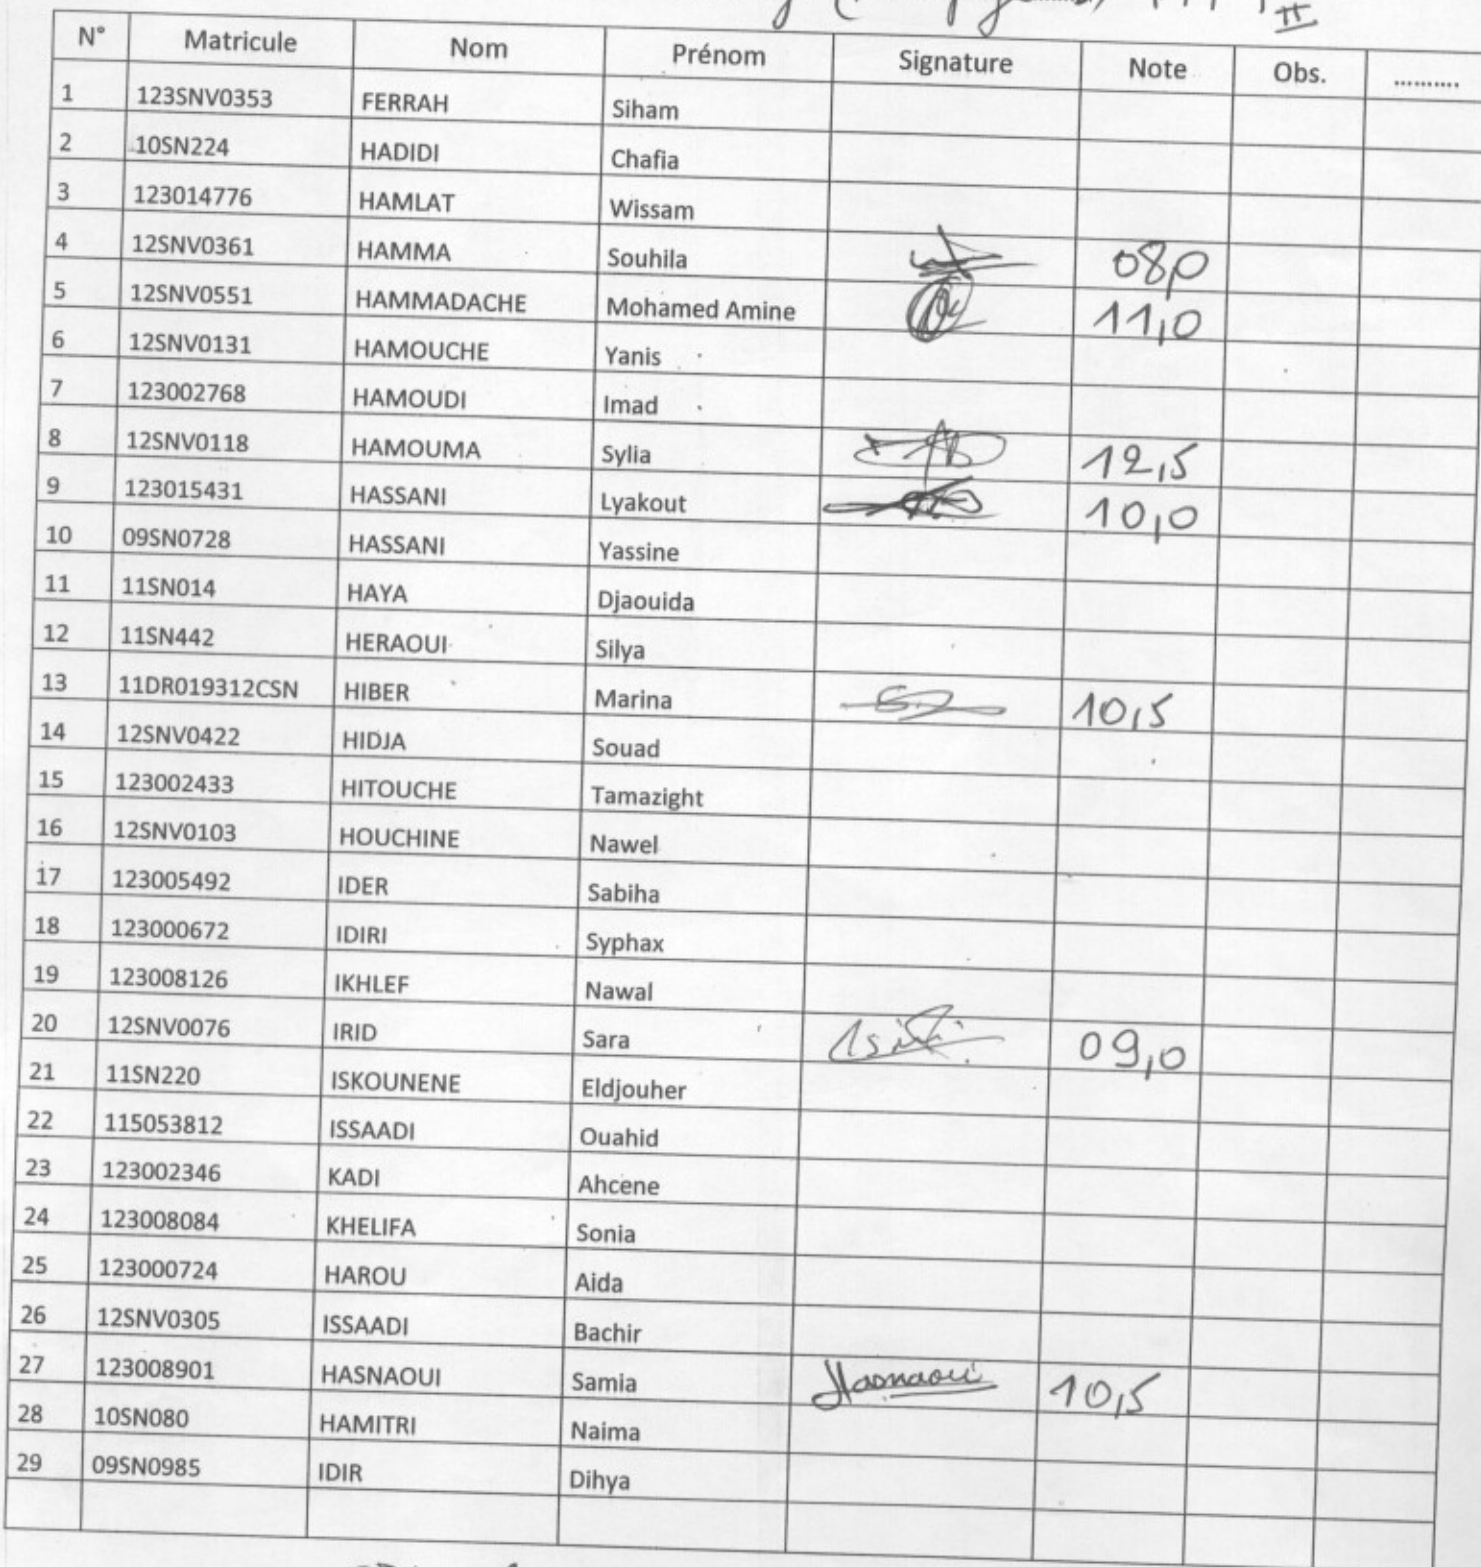 N° Matricule Nom Prénom Signature Note Obs. ..........
1 123SNV0353 FERRAH Siham
2 10SN224 HADIDI Chafia
3 123014776 HAMLAT Wissam
4 12SNV0361 HAMMA Souhila 08,0
5 12SNV0551 HAMMADACHE Mohamed Amine 11,0
6 12SNV0131 HAMOUCHE Yanis
7 123002768 HAMOUDI Imad
8 12SNV0118 HAMOUMA Sylia 12,5
9 123015431 HASSANI Lyakout 10,0
10 09SN0728 HASSANI Yassine
11 11SN014 HAYA Djaouida
12 11SN442 HERAOUI Silya
13 11DR019312CSN HIBER Marina 10,5
14 12SNV0422 HIDJA Souad
15 123002433 HITOUCHE Tamazight
16 12SNV0103 HOUCHINE Nawel
17 123005492 IDER Sabiha
18 123000672 IDIRI Syphax
19 123008126 IKHLEF Nawal
20 12SNV0076 IRID Sara 09,0
21 11SN220 ISKOUNENE Eldjouher
22 115053812 ISSAADI Ouahid
23 123002346 KADI Ahcene
24 123008084 KHELIFA Sonia
25 123000724 HAROU Aida
26 12SNV0305 ISSAADI Bachir
27 123008901 HASNAOUI Samia Hasnaoui 10,5
28 10SN080 HAMITRI Naima
29 09SN0985 IDIR Dihya